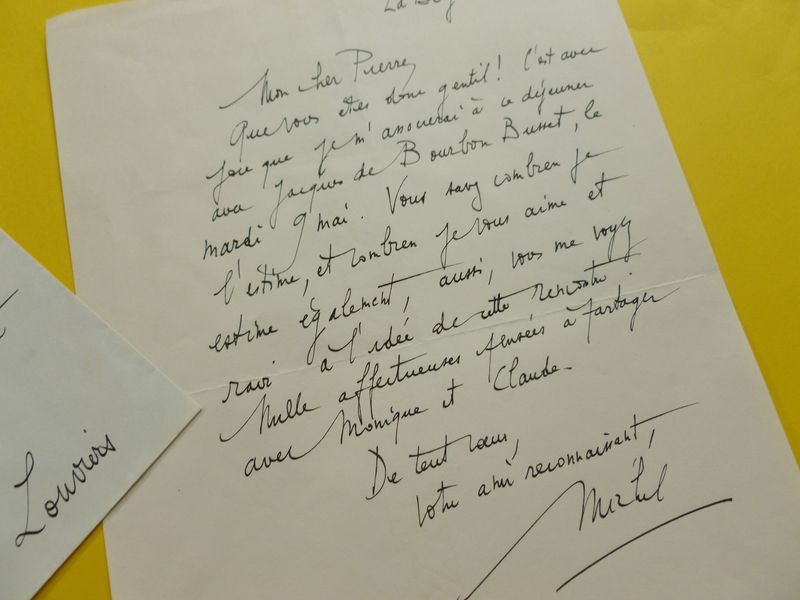 Mon cher Pierre,
Que vous êtes donc gentil ! C'est avec
joie que je m'associerai à ce déjeuner
avec Jacques de Bourbon Busset, le
mardi 9 mai. Vous savez combien je
l'estime, et combien je vous aime et
estime également, aussi, vous me voyez
ravi à l'idée de cette rencontre.
Mille affectueuses pensées à partager
avec Monique et Claude.
De tout cœur,
Votre ami reconnaissant,
Michel
Louviers